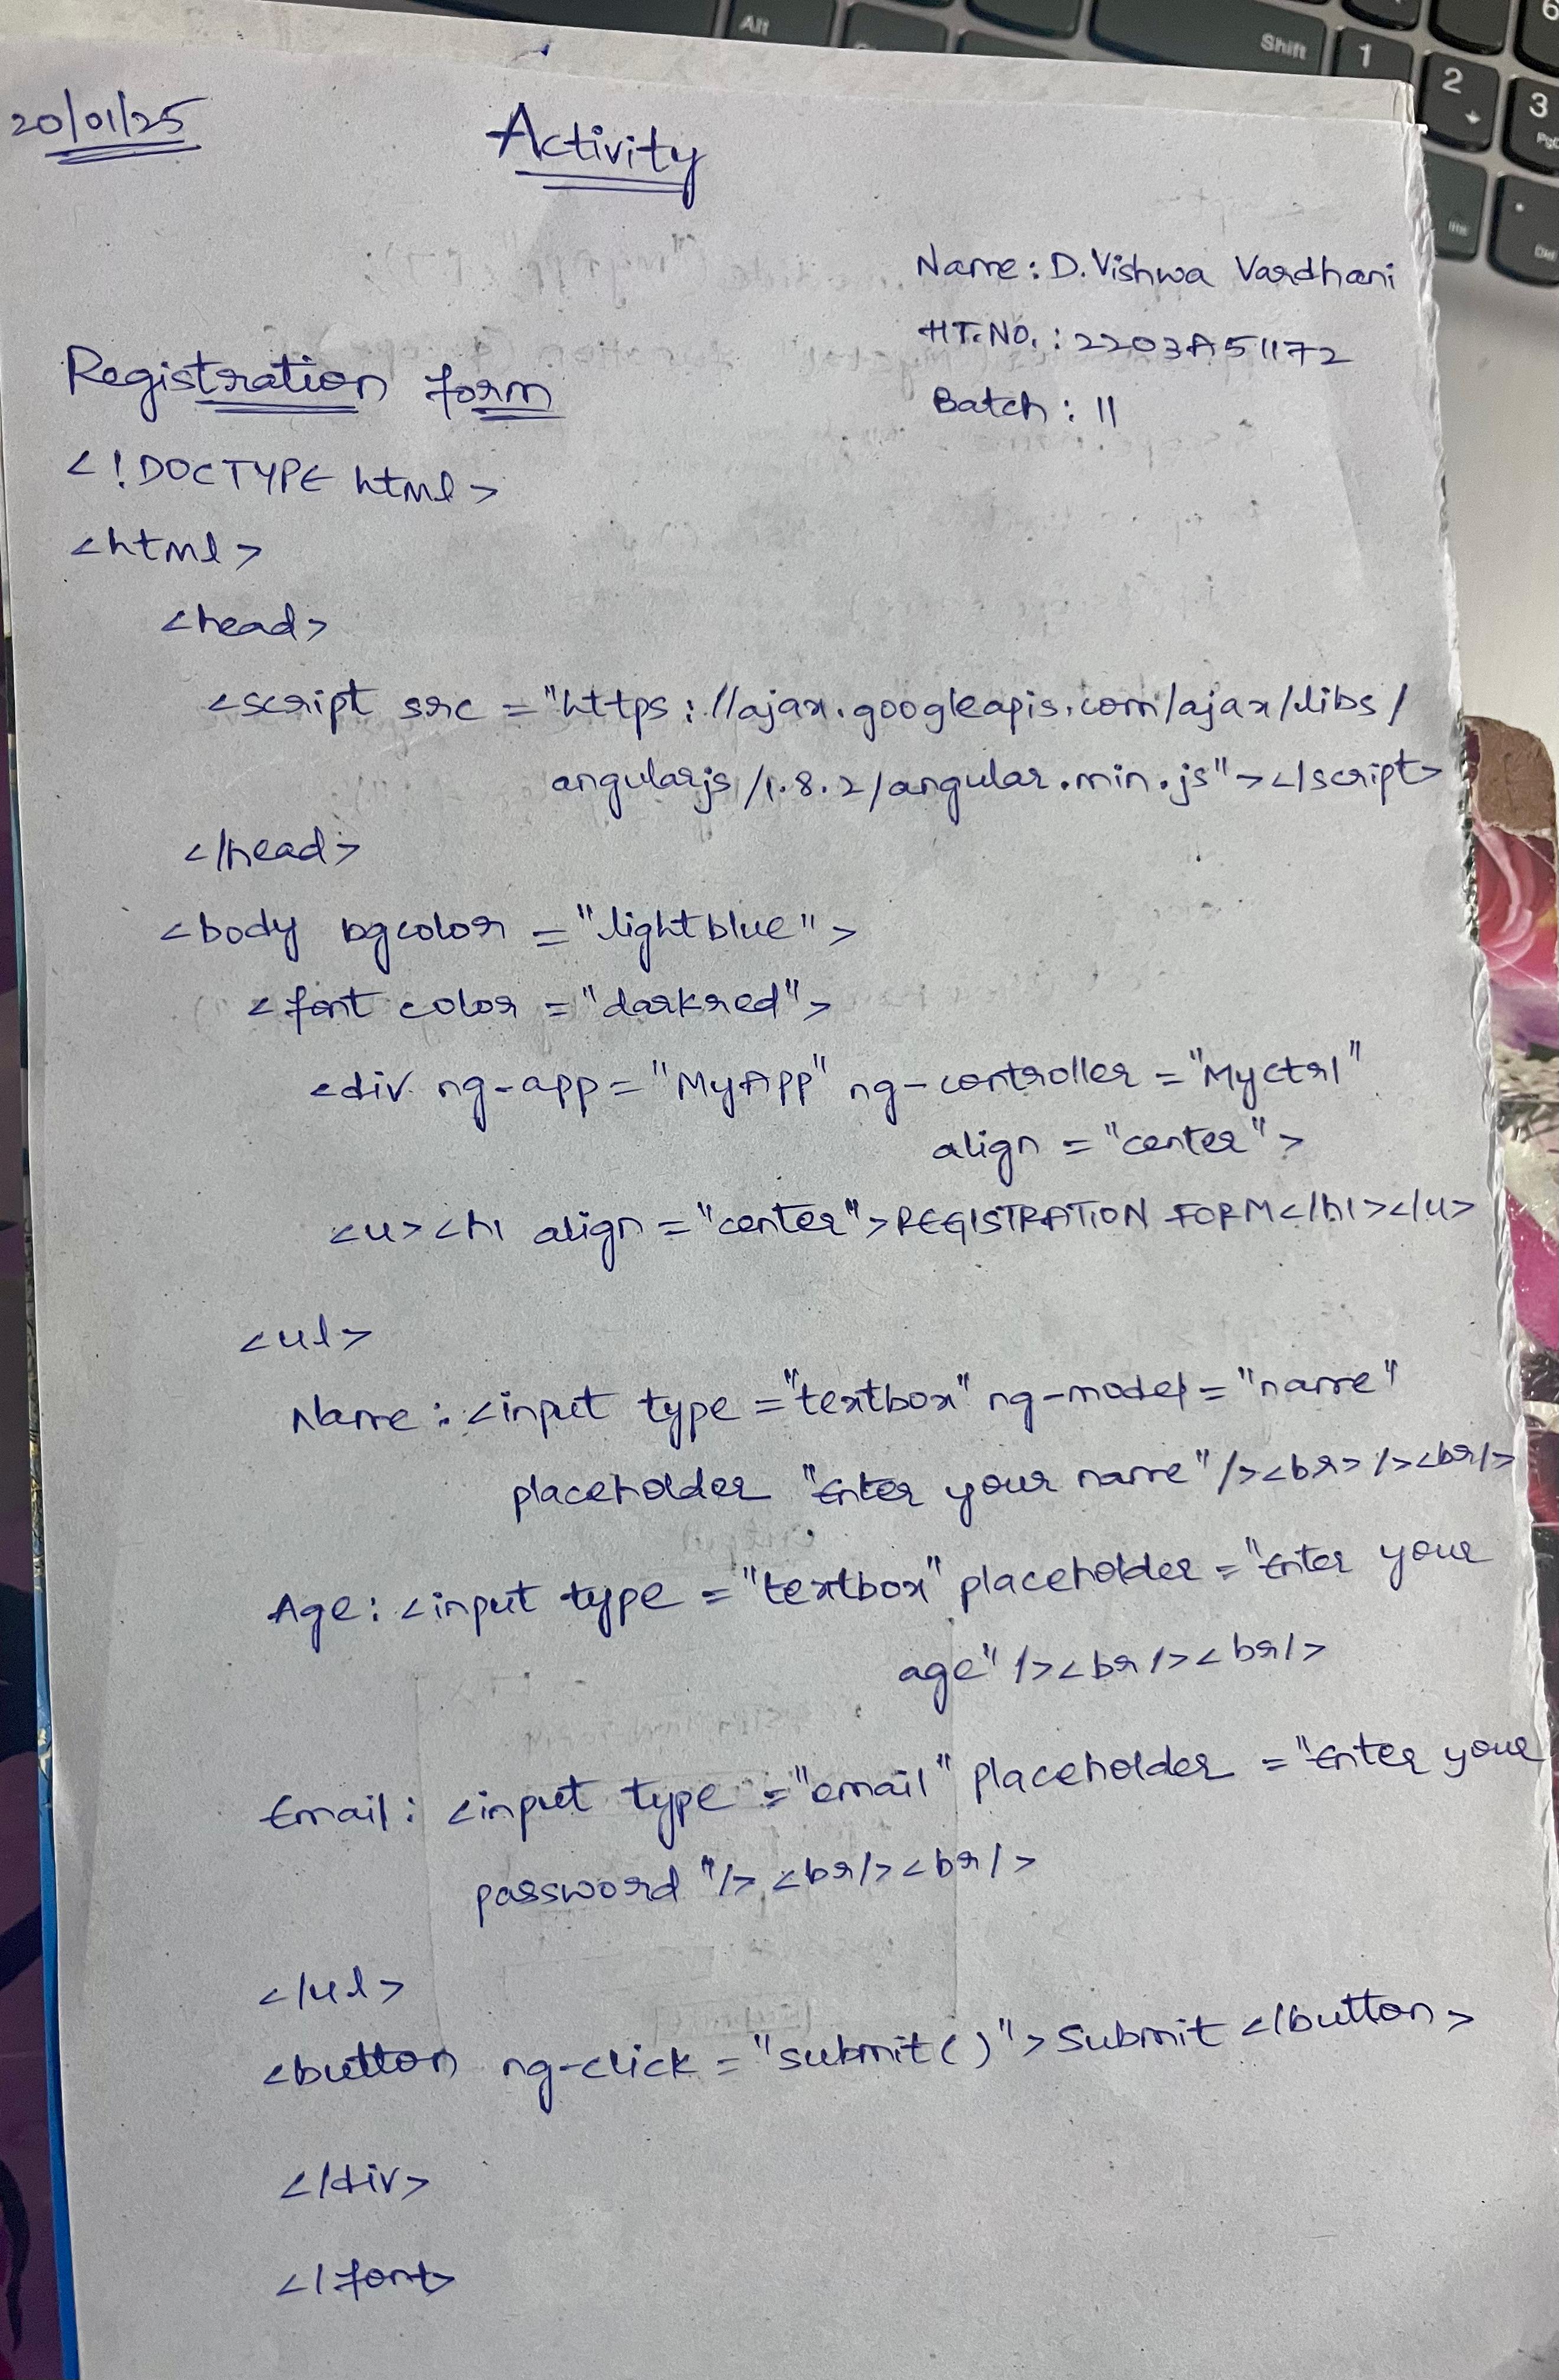 Alt
Shift
1
2
3
6
PgD
Ins
Del
20/01/25
Activity
Name: D. Vishwa Vardhani
HT.NO. : 2203A51172
Batch : 11
Registration form
<!DOCTYPE html>
<html>
<head>
<script src = "https://ajax.googleapis.com/ajax/libs/
angularjs/1.8.2/angular.min.js"></script>
</head>
<body bgcolor = "lightblue">
<font color = "darkred">
<div ng-app = "MyApp" ng-controller = "Myctrl"
align = "center">
<u><h1 align = "center">REGISTRATION FORM</h1></u>
<ul>
Name : <input type = "textbox" ng-model = "name"
placeholder "Enter your name"/><br> /><br/>
Age : <input type = "textbox" placeholder = "Enter your
age" /><br /><br/>
Email : <input type = "email" placeholder = "Enter your
password "/> <br/><br/>
</ul>
<button ng-click = "submit()">Submit </button>
</div>
</font>